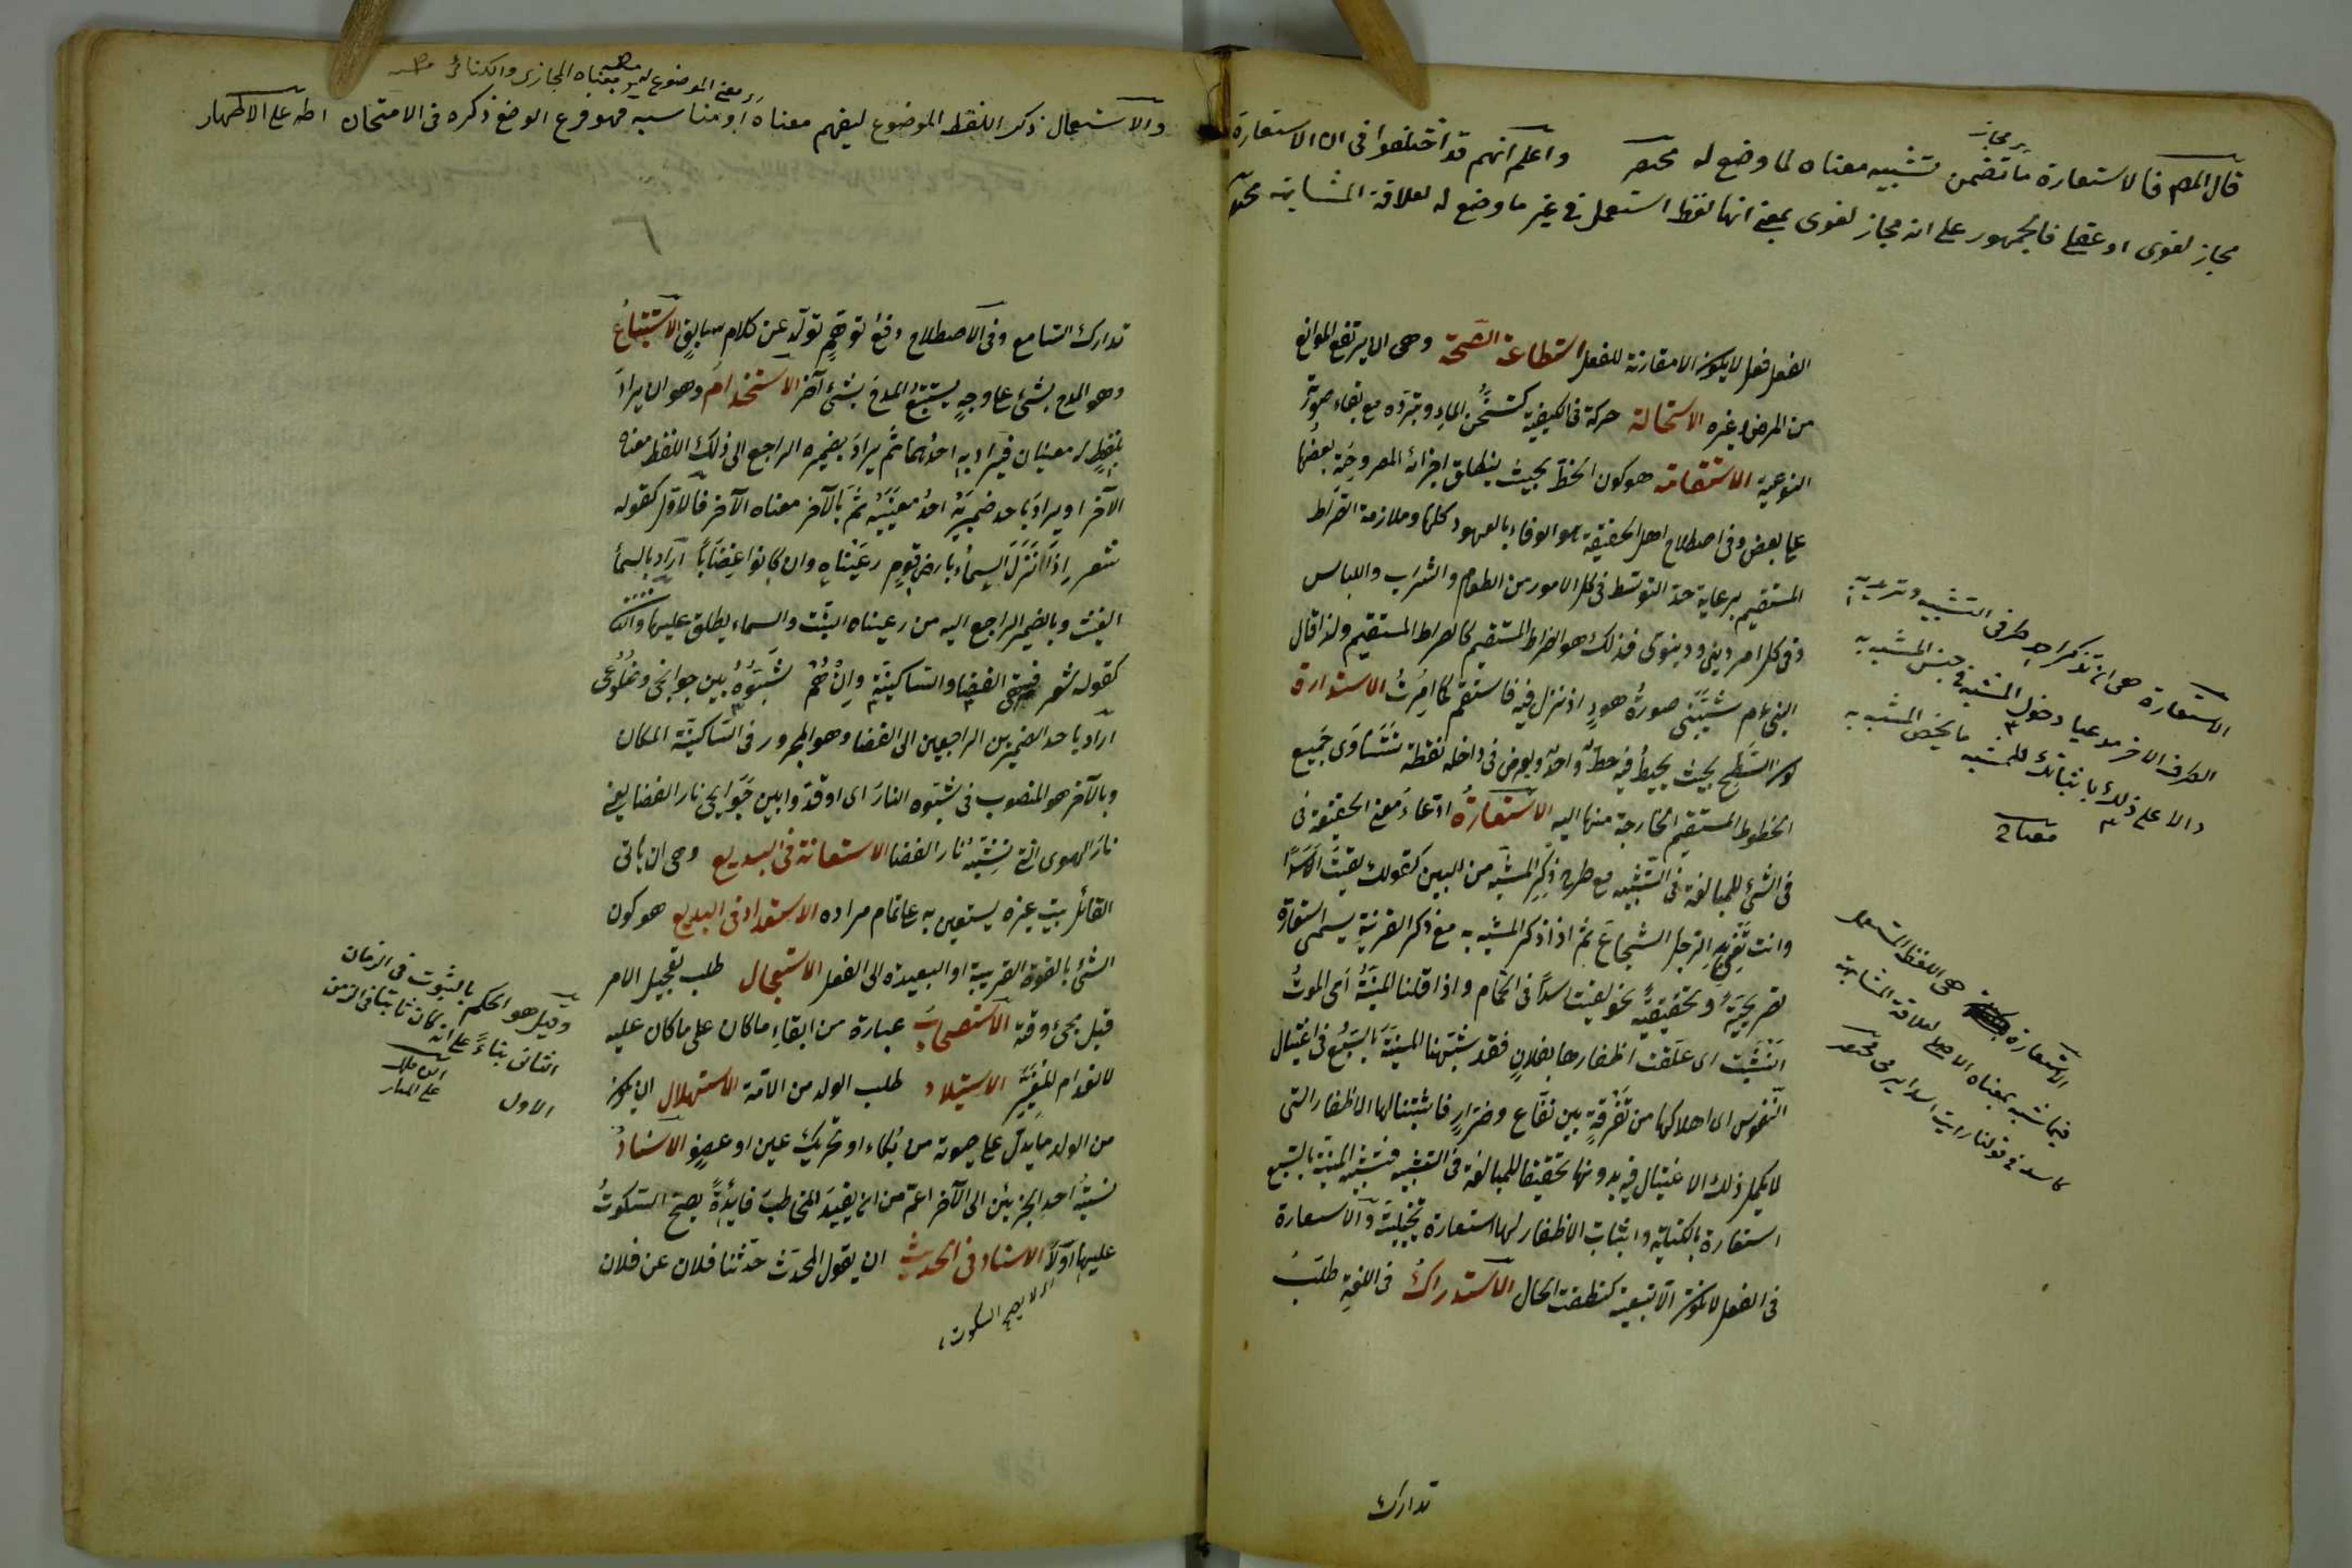 قال المص فالاستعارة ما تضمن تشبيه معناه لما وضع له مختصر واعلم انهم قد اختلفوا فى ان الاستعارة
مجاز لغوى او عقلى فالجمهور على انه مجاز لغوى بمعنى انها لفظ استعمل فى غير ما وضع له لعلاقة المشابهة
الفعل فعلا لا يكون الا مقارنة للفعل استطاعة الصحة وهى ان يرتفع الموانع
من المرض وغيره الاستحالة حركة فى الكيفية كتسخن الماء وتبرده مع بقاء صورته
النوعية الاستقامة هو كون الخط بحيث ينطبق اجزائه المفروضة بعضها
على بعض وفى اصطلاح اهل الحقيقة هو الوفاء بالعهود كلها وملازمة الصراط
المستقيم برعاية حد التوسط فى كل الامور من الطعام والشراب واللباس
وفى كل امر دينى ودنيوى فذلك هو الصراط المستقيم كالصراط المستقيم ولذا قال
النبى عم شيبتنى سورة هود اذ نزل فيه فاستقم كما امرت الاستدارة
كون السطح بحيث يحيط فيه خط واحد ويفرض فى داخله نقطة تتساوى جميع
الخطوط المستقيم الخارجة منها اليه الاستعارة ادعاء معنى الحقيقة فى
فى الشئ للمبالغة فى التشبيه مع طرح ذكر المشبه من البين كقولك لقيت اسدا
وانت تعنى به الرجل الشجاع ثم اذا ذكر المشبه به مع ذكر القرينة يسمى استعارة
تصريحية وتحقيقية نحو لقيت اسدا فى الحمام واذا قلنا المنية اى الموت
انشبت اى علقت اظفارها بفلان فقد شبهنا المنية بالسبع فى اغتيال
النفوس اى اهلاكها من تفرقة بين نفاع وضرار فاثبتنا لها الاظفار التى
لا يكمل ذلك الاغتيال فيه بدونها تحقيقا للمبالغة فى التشبيه فتشبيه المنية بالسبع
استعارة بالكناية واثبات الاظفار لها استعارة تخييلية والاستعارة
فى الفعل لا تكون الا تبعية كنطقت الحال الاستدراك فى اللغة طلب
الاستعارة هى ان تذكر احد طرفى التشبيه وتريد به
الطرف الآخر مدعيا دخول المشبه فى جنس المشبه به
دالا على ذلك باثباتك للمشبه ما يخص المشبه به
مفتاح
الاستعارة هى اللفظ المستعمل
فيما شبه بمعناه الاصلى لعلاقة المشابهة
كاسد فى قولنا رايت اسدا يرمى مختصر
تدارك
والاستعمال ذكر اللفظ الموضوع ليفهم معناه او مناسبه فهو فرع الوضع ذكره فى الامتحان اطه على الاظهار
تدارك السامع وفى الاصطلاح دفع توهم تولد عن كلام سابق الاستتباع
وهو المدح بشئ على وجه يستتبع المدح بشئ آخر الاستخدام وهو ان يراد
بلفظ له معنيان فيراد به احدهما ثم يراد بضميره الراجع الى ذلك اللفظ معناه
الآخر او يراد باحد ضميريه احد معنييه ثم بالآخر معناه الآخر فالاول كقوله
شعر اذا نزل السماء بارض قوم رعيناه وان كانوا غضابا اراد بالسماء
الغيث وبالضمير الراجع اليه من رعيناه النبت والسماء يطلق عليها والثانى
كقوله شعر فسقى الغضا والساكنيه وان هم شبوه بين جوانحى وضلوعى
اراد باحد الضميرين الراجعين الى الغضا وهو المجرور فى الساكنية المكان
وبالآخر هو المنصوب فى شبوه النار اى اوقدوا بين جوانحى نار الغضا يعنى
نار الهوى التى تشبه نار الغضا الاستعانة فى البديع وهى ان يأتى
القائل ببيت غيره يستعين به على اتمام مراده الاستعداد فى البديع هو كون
الشئ بالقوة القريبة او البعيدة الى الفعل الاستعجال طلب تعجيل الامر
قبل مجئ وقته الاستصحاب عبارة من ابقاء ما كان على ما كان عليه
لانعدام المغير الاستيلاد طلب الولد من الامة الاستهلال ان يكون
من الولد ما يدل على حيوته من بكاء او تحريك عين او عضو الاسناد
نسبة احد الجزئين الى الآخر اعم من ان يفيد المخاطب فائدة يصح السكوت
عليها اولا الاسناد فى الحديث ان يقول المحدث حدثنا فلان عن فلان
اى لا يصح السكوت
وقيل هو الحكم بالثبوت فى الزمان
الثانى بناء على انه كان ثابتا فى الزمن
الاول
ابن ملك
على المنار